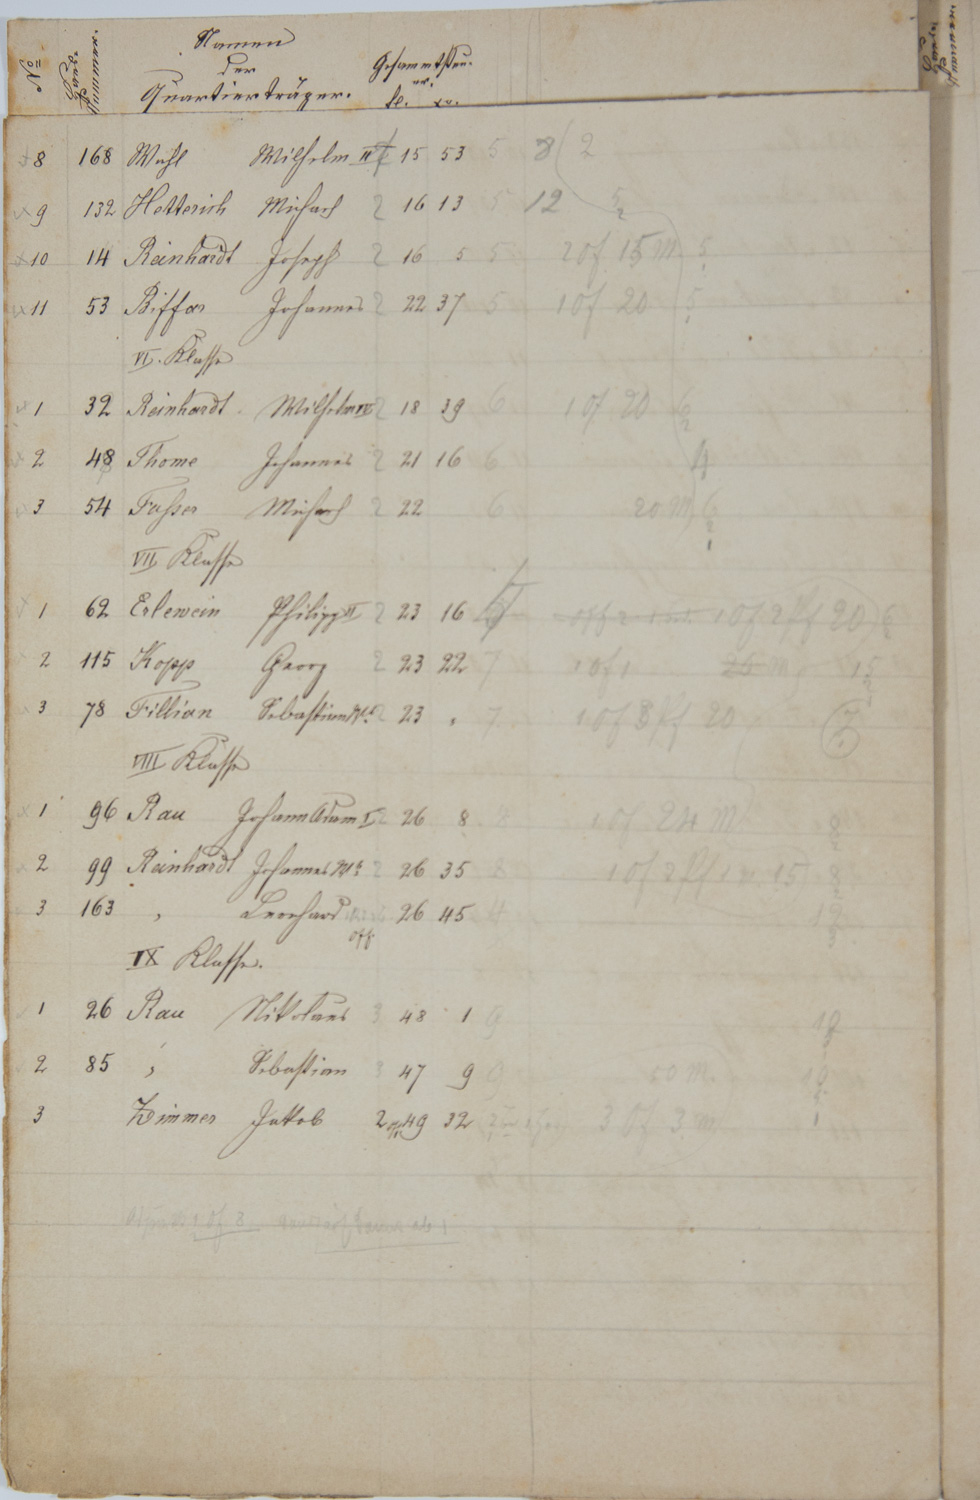 No Haus nummer Namen der Quartierträger. Gesammtsteu- er. fl. xr.
8 168 Wahl Wilhelm II 15 53 5 8 2
9 132 Hetterich Michael 2 16 13 5 12 5 2
10 14 Reinhardt Joseph 2 16 5 5 2 Of 15 M 5
11 53 Biffar Johannes 2 22 37 5 1 Of 20 5
VI. Klasse
1 32 Reinhardt Wilhelm IV 2 18 39 6 1 Of 20 6 2
2 48 Thome Johannes 2 21 16 6 4
3 54 Fasser Michael 2 22 6 20 M 6 2 1
VII Klasse
1 62 Erlewein Philipp II 2 23 16 1 Of 2 Pf 20 6
2 115 Kopp Georg 2 23 22 7 1 Of 1 25 M 15
3 78 Fillian Sebastian 2 23 „ 7 1 Of 3 Pf 20 7
VIII Klasse
1 96 Rau Johann Adam I 2 26 8 8 1 Of 24 M 8 2
2 99 Reinhardt Johannes 2 26 35 8 1 Of 2 Pf 15 8
3 163 „ Leonhard 26 45
off
IX Klasse.
1 26 Rau Nikolaus 3 48 1 9 19
2 85 „ Sebastian 3 47 9 9 50 M. 19
3 Zimmer Jakob 2 49 32 3 Of 3 M 1